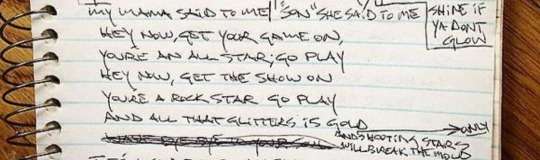 MY MAMA SAID TO ME "SON" SHE SAID TO ME
SHINE IF
YA DONT
GLOW
HEY NOW, GET YOUR GAME ON,
YOU'RE AN ALL STAR; GO PLAY
HEY NOW, GET THE SHOW ON
YOU'RE A ROCK STAR GO PLAY
AND ALL THAT GLITTERS IS GOLD
ONLY
AND SHOOTING STARS
WILL BREAK THE MOLD